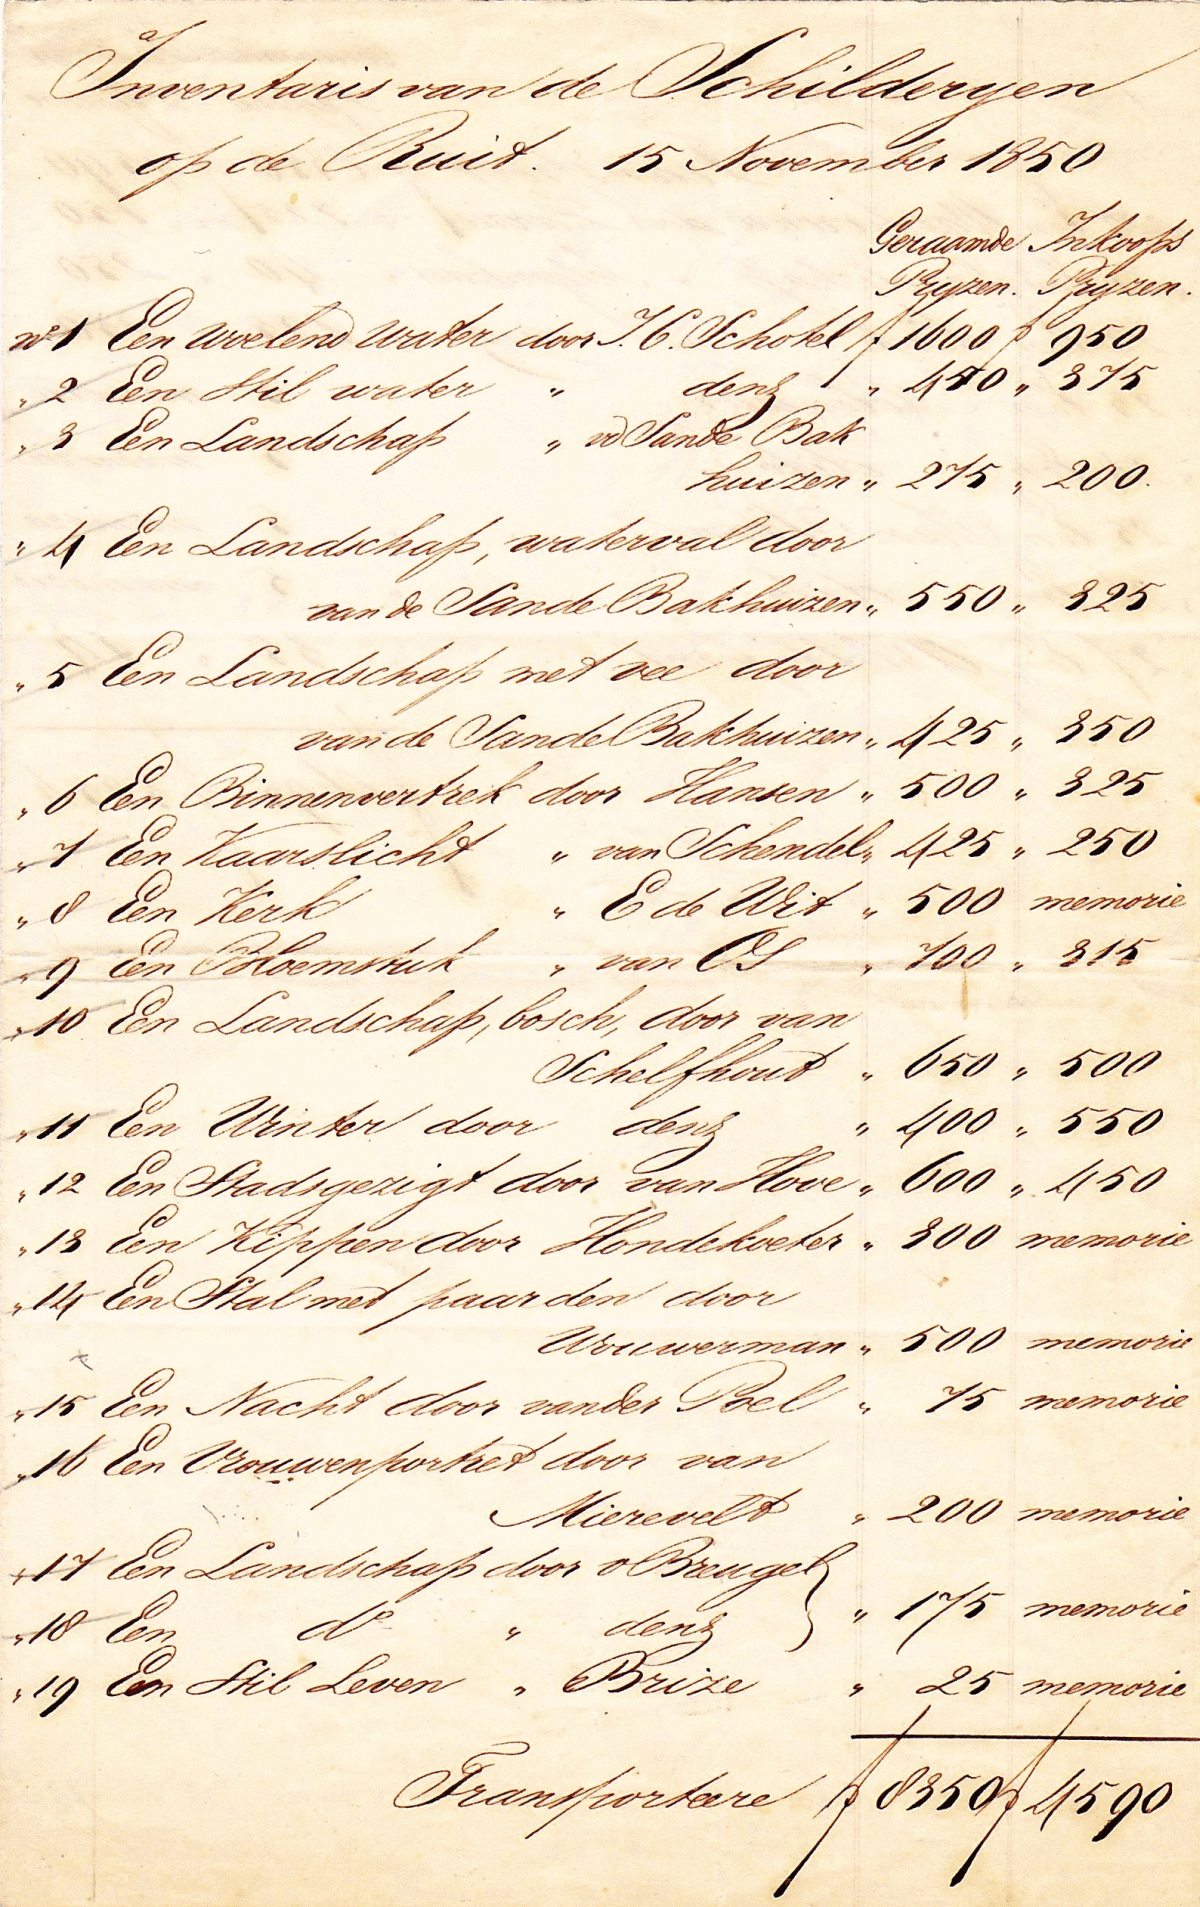 Inventaris van de Schilderyen
op de Ruit. 15 November 1850
Geraamde Inkoops
Pryzen. Pryzen.
no 1 Een woelend water door J. C. Schotel f 1600 f 950
" 2 Een Stil water " denz " 450 " 375
" 3 Een Landschap " vd Sande Bak
huizen " 275 " 200.
" 4 Een Landschap, waterval door
van de Sande Bakhuizen " 550 " 325
" 5 Een Landschap met vee door
van de Sande Bakhuizen " 425 " 350
" 6 Een Binnenvertrek door Hansen " 500 " 325
" 7 Een Kaarslicht " van Schendel " 425 " 250
" 8 Een Kerk " E de Wit " 500 memorie
" 9 Een Bloemstuk " van OS " 700 " 315
" 10 Een Landschap, bosch, door van
Schelfhout " 650 " 500
" 11 Een Winter door denz " 400 " 550
" 12 Een Stadsgezigt door van Hove " 600 " 450
" 13 Een Kippen door Hondekoeter " 300 memorie
" 14 Een Stal met paarden door
Wouwerman " 500 memorie
" 15 Een Nacht door vander Poel " 75 memorie
" 16 Een Vrouwenportret door van
Mierevelt " 200 memorie
" 17 Een Landschap door v Breugel
" 175 memorie
" 18 Een do " denz
" 19 Een Stil Leven " Brize " 25 memorie
Transporteere f 8350 f 4590